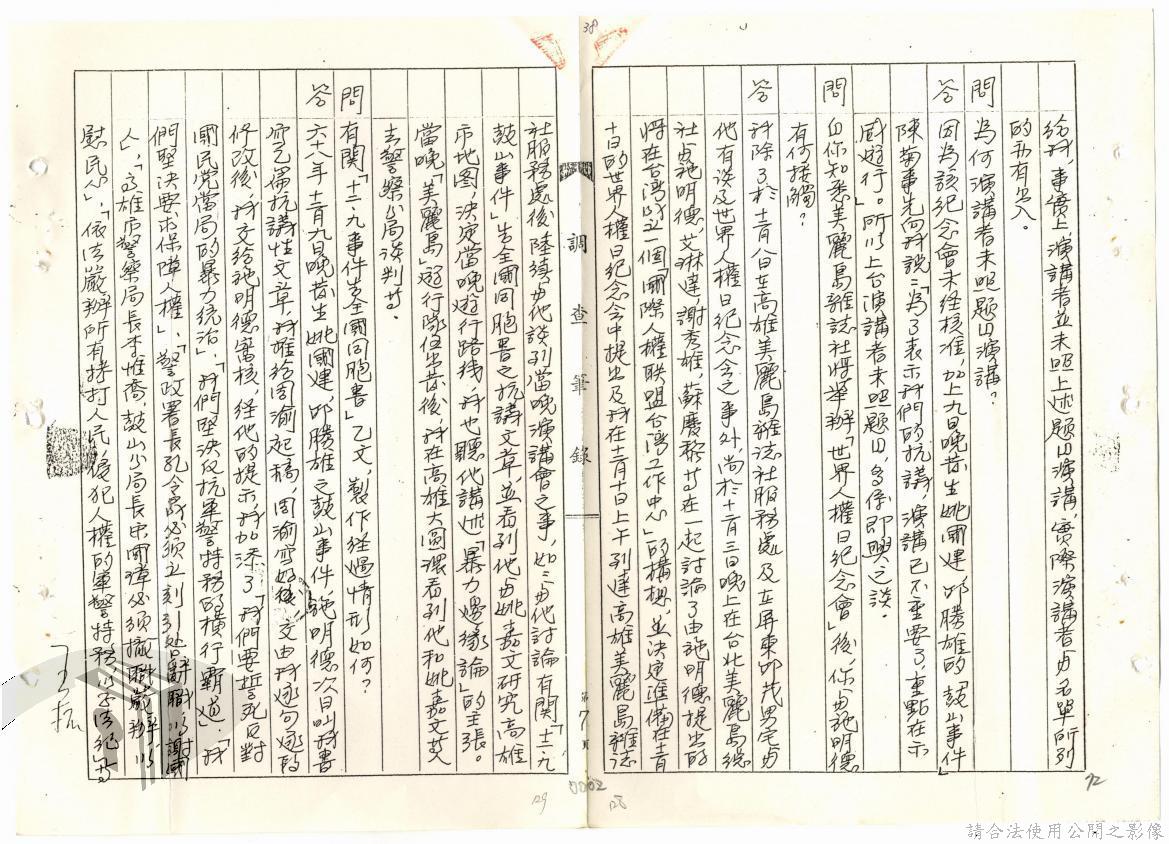 38
給我，事實上，演講者並未照上述題目演講，實際演講者與名單所列
的亦有出入。
問 為何演講者未照題目演講？
答 因為該紀念會未經核准加上九日晚發生姚國建邱勝雄的「鼓山事件」
陳菊事先向我說：「為了表示我們的抗議，演講已不重要了，重點在示
威遊行」。所以上台演講者未照題目，多係即興之談。
問 自你知悉美麗島雜誌社將舉辦「世界人權日紀念會」後，你與施明德
有何接觸？
答 我除了於十二月八日在高雄美麗島雜誌社服務處及在屏東邱茂男宅與
他有談及世界人權日紀念會之事外，尚於十二月三日晚上在台北美麗島總
社與施明德，艾琳達，謝秀雄，蘇慶黎等在一起討論了由施明德提出的
將在台灣成立一個「國際人權聯盟台灣工作中心」的構想，並決定準備在十二月
十日的世界人權日紀念會中提出及我在十二月十日上午到達高雄美麗島雜誌
72
128
調查筆錄
第7頁
0002
社服務處後陸續與他談到當晚演講會之事，如：與他討論有關「十二、九
鼓山事件」告全國同胞書之抗議文章，並看到他與姚嘉文研究高雄
市地圖，決定當晚遊行路線，我也聽他講述「暴力邊緣論」的主張。
當晚「美麗島」遊行隊伍出發後，我在高雄大圓環看到他和姚嘉文等人
去警察分局談判等。
問 有關「十二、九事件告全國同胞書」乙文，製作經過情形如何？
答 六十八年十二月九日晚發生姚國建，邱勝雄之鼓山事件，施明德次日叫我書
寫乙篇抗議性文章，我雖給周渝起稿，周渝寫好後，文由我逐句逐段
修改後，我交給施明德審核，經他的提示，我加深了「我們要誓死反對
國民黨當局的暴力統治」，「我們堅決反抗軍警特務的橫行霸道」，「我
們堅決要求保障人權」，「警政署長孔令晟必須立刻引咎辭職以謝國
人」，「高雄市警察局長李惟喬，鼓山分局長中國璋必須撤職嚴辦以
慰民心」，「依法嚴辦所有拷打人民，侵犯人權的軍警特務以孚法紀」等
129
請合法使用公開之影像